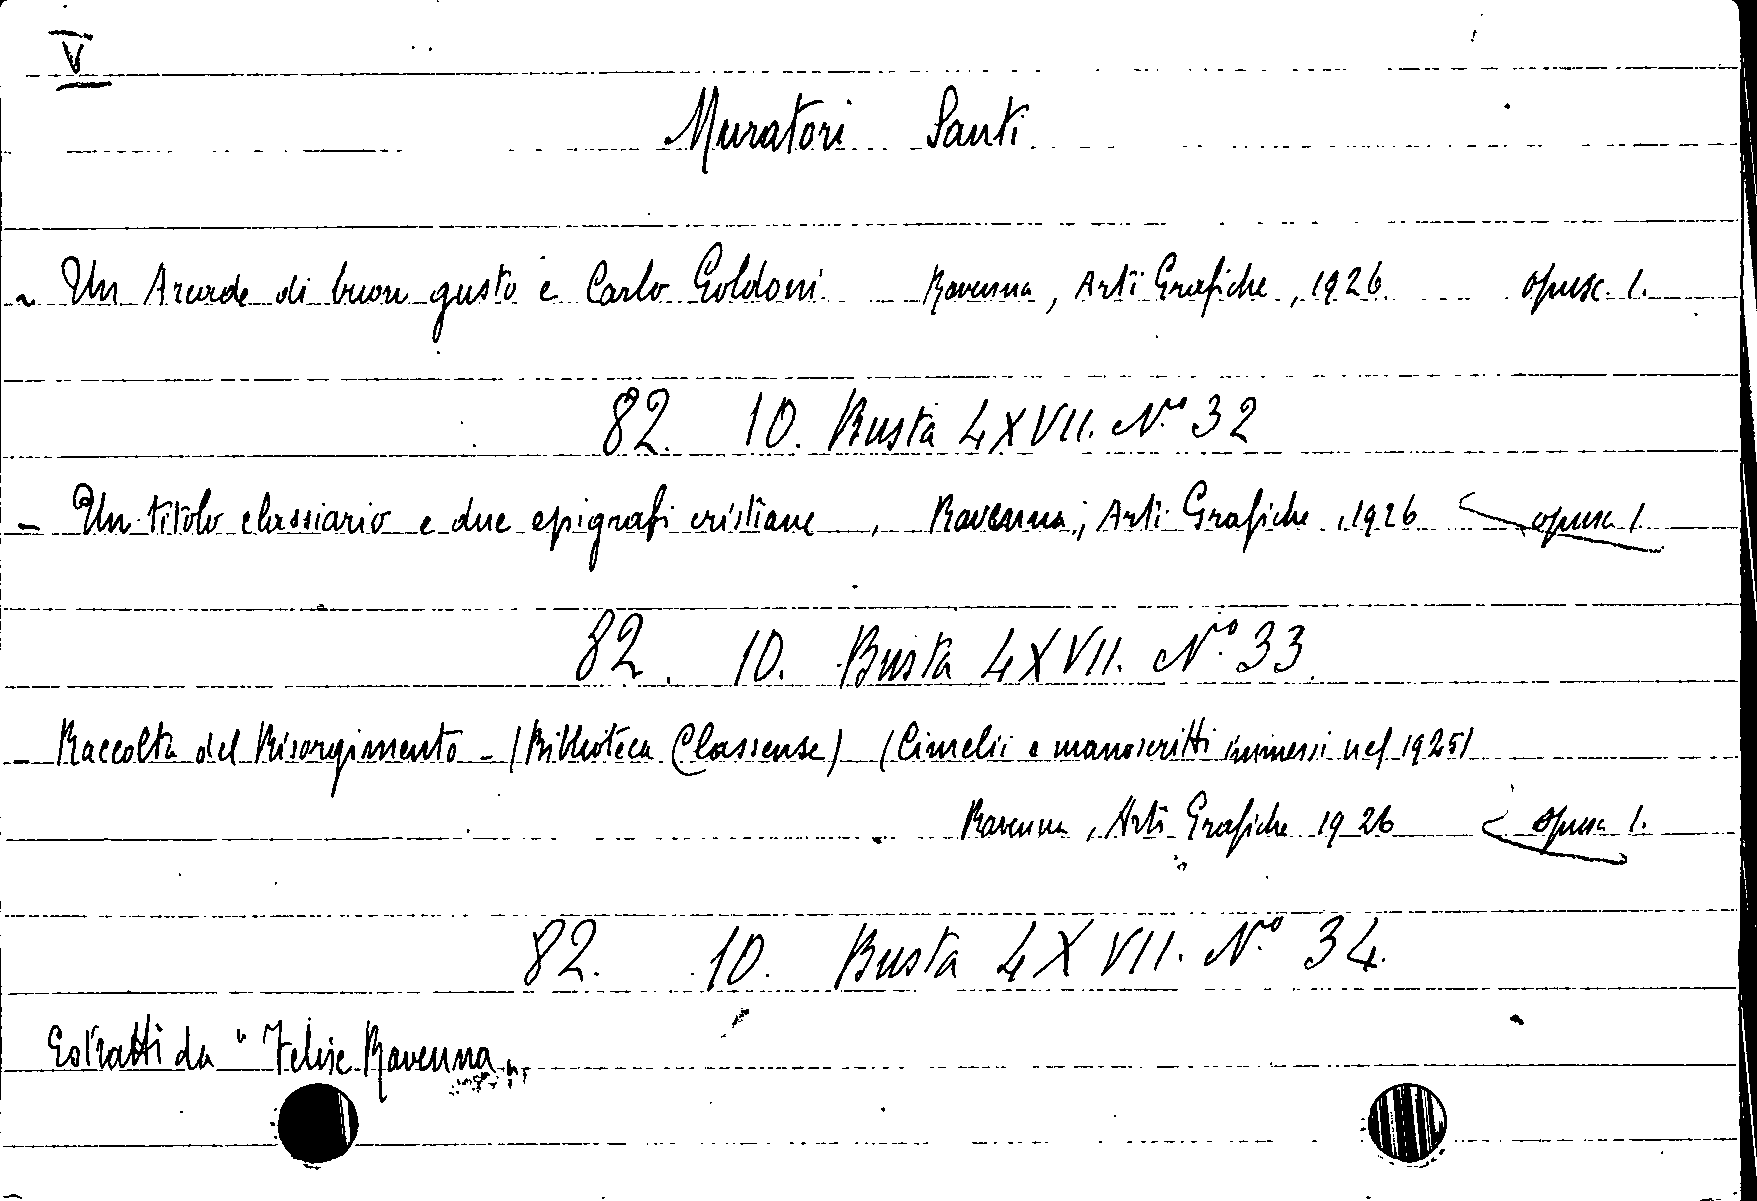 V
Muratori Santi
- Un Arcade di buon gusto e Carlo Goldoni Ravenna, Arti Grafiche, 1926 opusc. 1.
82. 10. Busta LXVII. N.o 32
- Un titolo classiario e due epigrafi cristiane, Ravenna, Arti Grafiche, 1926 opusc 1.
82. 10. Busta LXVII. N.o 33.
- Raccolta del Risorgimento - (Biblioteca Classense) (Cimelii e manoscritti immessi nel 1925)
Ravenna, Arti Grafiche 1926 opusc 1.
82. 10. Busta LXVII. N.o 34.
Estratti da "Felix Ravenna"